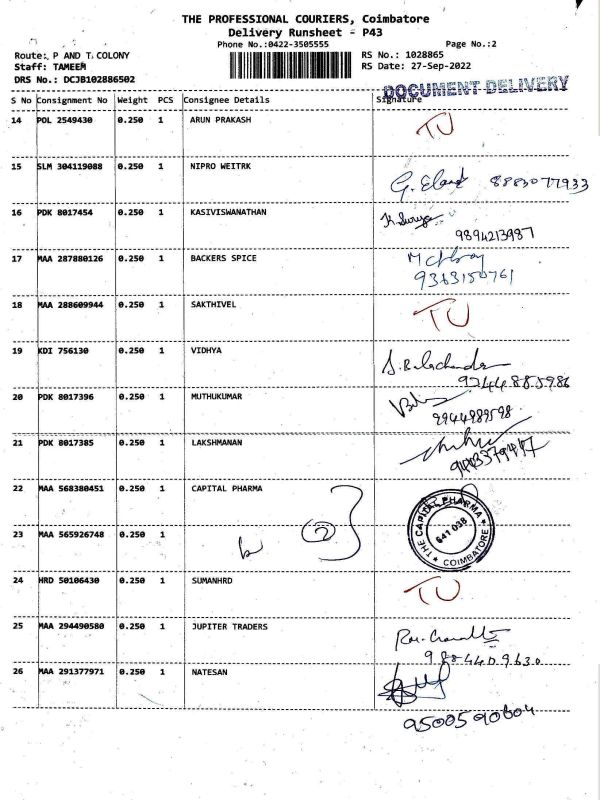 THE PROFESSIONAL COURIERS, Coimbatore
Delivery Runsheet - P43
Phone No.:0422-3505555
Page No.:2
Route: P AND T COLONY
RS No.: 1028865
Staff: TAMEEM
RS Date: 27-Sep-2022
DRS No.: DCJB102886502
DOCUMENT DELIVERY
S No Consignment No Weight PCS Consignee Details Signature
14 POL 2549430 0.250 1 ARUN PRAKASH TU
15 SLM 304119088 0.250 1 NIPRO WEITRK
8883077933
16 PDK 8017454 0.250 1 KASIVISWANATHAN K. Surya
9894213987
17 MAA 287880126 0.250 1 BACKERS SPICE
9363150761
18 MAA 288609944 0.250 1 SAKTHIVEL TU
19 KDI 756130 0.250 1 VIDHYA
9244885986
20 PDK 8017396 0.250 1 MUTHUKUMAR
9944989598
21 PDK 8017385 0.250 1 LAKSHMANAN
22 MAA 568380451 0.250 1 CAPITAL PHARMA
THE CAPITAL PHARMA
641 038
COIMBATORE
23 MAA 565926748 0.250 1
2
24 HRD 50106430 0.250 1 SUMANHRD TU
25 MAA 294490580 0.250 1 JUPITER TRADERS
9804409630
26 MAA 291377971 0.250 1 NATESAN
9500590604